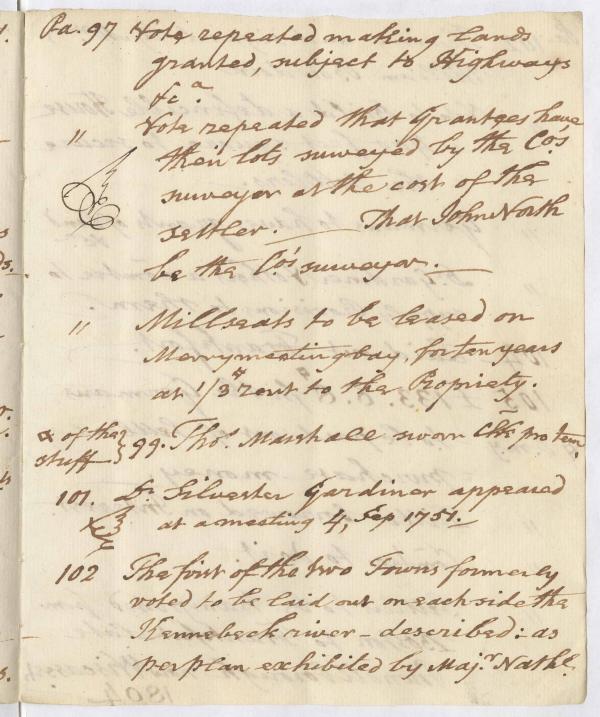 Pa. 97 Vote repeated making Lands
granted, subject to Highways
&c.a
" Vote repeated that Grantees have
their lots surveyed by the Co's
surveyor at the cost of the
settler. — That John North
be the Co's surveyor. —
" Millseats to be leased on
Merrymeeting bay, for ten years
at 1/3d rent to the Propriety.
& of the
stuff } 99. Thos. Marshall sworn Clk pro tem.
101. Dr. Silvester Gardiner appeared
at a meeting 4, Sep 1751. —
102 The first of the two Towns formerly
voted to be laid out on each side the
Kennebeck river - described: as
per plan exhibited by Majr. Nathl.